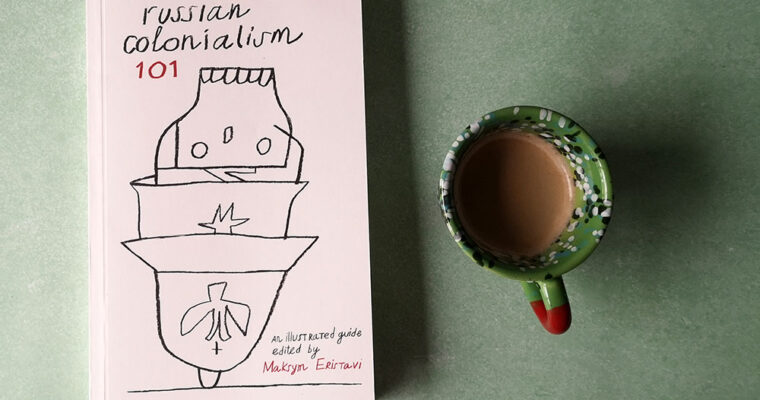 russian
colonialism
101
An illustrated guide
edited by
Maksym Eristavi